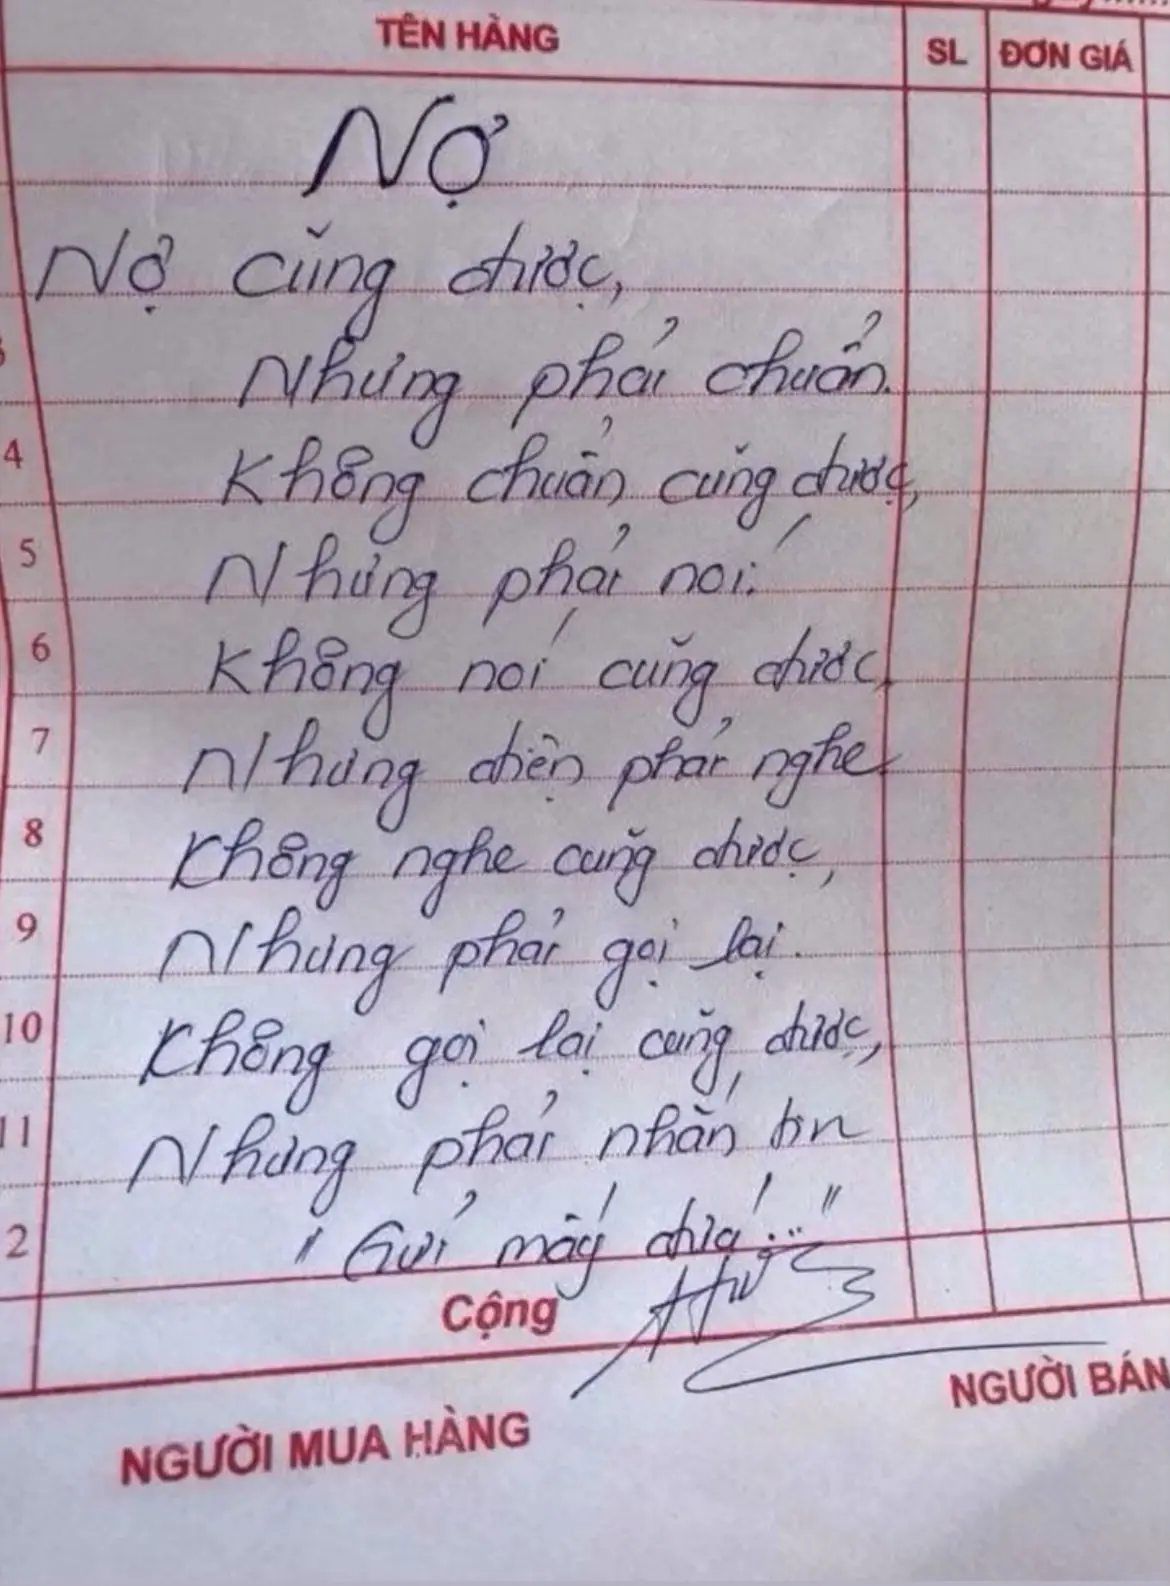 TÊN HÀNG SL ĐƠN GIÁ
Nợ
Nợ cũng được,
Nhưng phải chuẩn.
4 Không chuẩn cũng được,
5 Nhưng phải nói.
6 Không nói cũng được,
7 Nhưng điện phải nghe.
8 Không nghe cũng được,
9 Nhưng phải gọi lại.
10 Không gọi lại cũng được,
11 Nhưng phải nhắn tin
2 "Gửi mấy đứa!..."
Cộng
NGƯỜI MUA HÀNG NGƯỜI BÁN